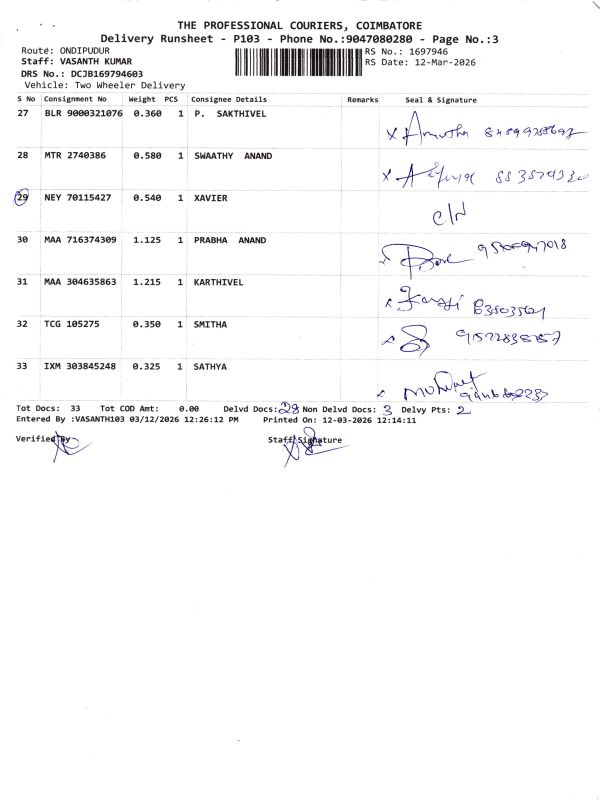 THE PROFESSIONAL COURIERS, COIMBATORE
Delivery Runsheet - P103 - Phone No.:9047080280 - Page No.:3
Route: ONDIPUDUR RS No.: 1697946
Staff: VASANTH KUMAR RS Date: 12-Mar-2026
DRS No.: DCJB169794603
Vehicle: Two Wheeler Delivery
S No Consignment No Weight PCS Consignee Details Remarks Seal & Signature
27 BLR 9000321076 0.360 1 P. SAKTHIVEL
28 MTR 2740386 0.580 1 SWAATHY ANAND
29 NEY 70115427 0.540 1 XAVIER
C/N
30 MAA 716374309 1.125 1 PRABHA ANAND
31 MAA 304635863 1.215 1 KARTHIVEL
32 TCG 105275 0.350 1 SMITHA
33 IXM 303845248 0.325 1 SATHYA
Tot Docs: 33 Tot COD Amt: 0.00 Delvd Docs: 28 Non Delvd Docs: 3 Delvy Pts: 2
Entered By :VASANTH103 03/12/2026 12:26:12 PM Printed On: 12-03-2026 12:14:11
Verified By Staff Signature